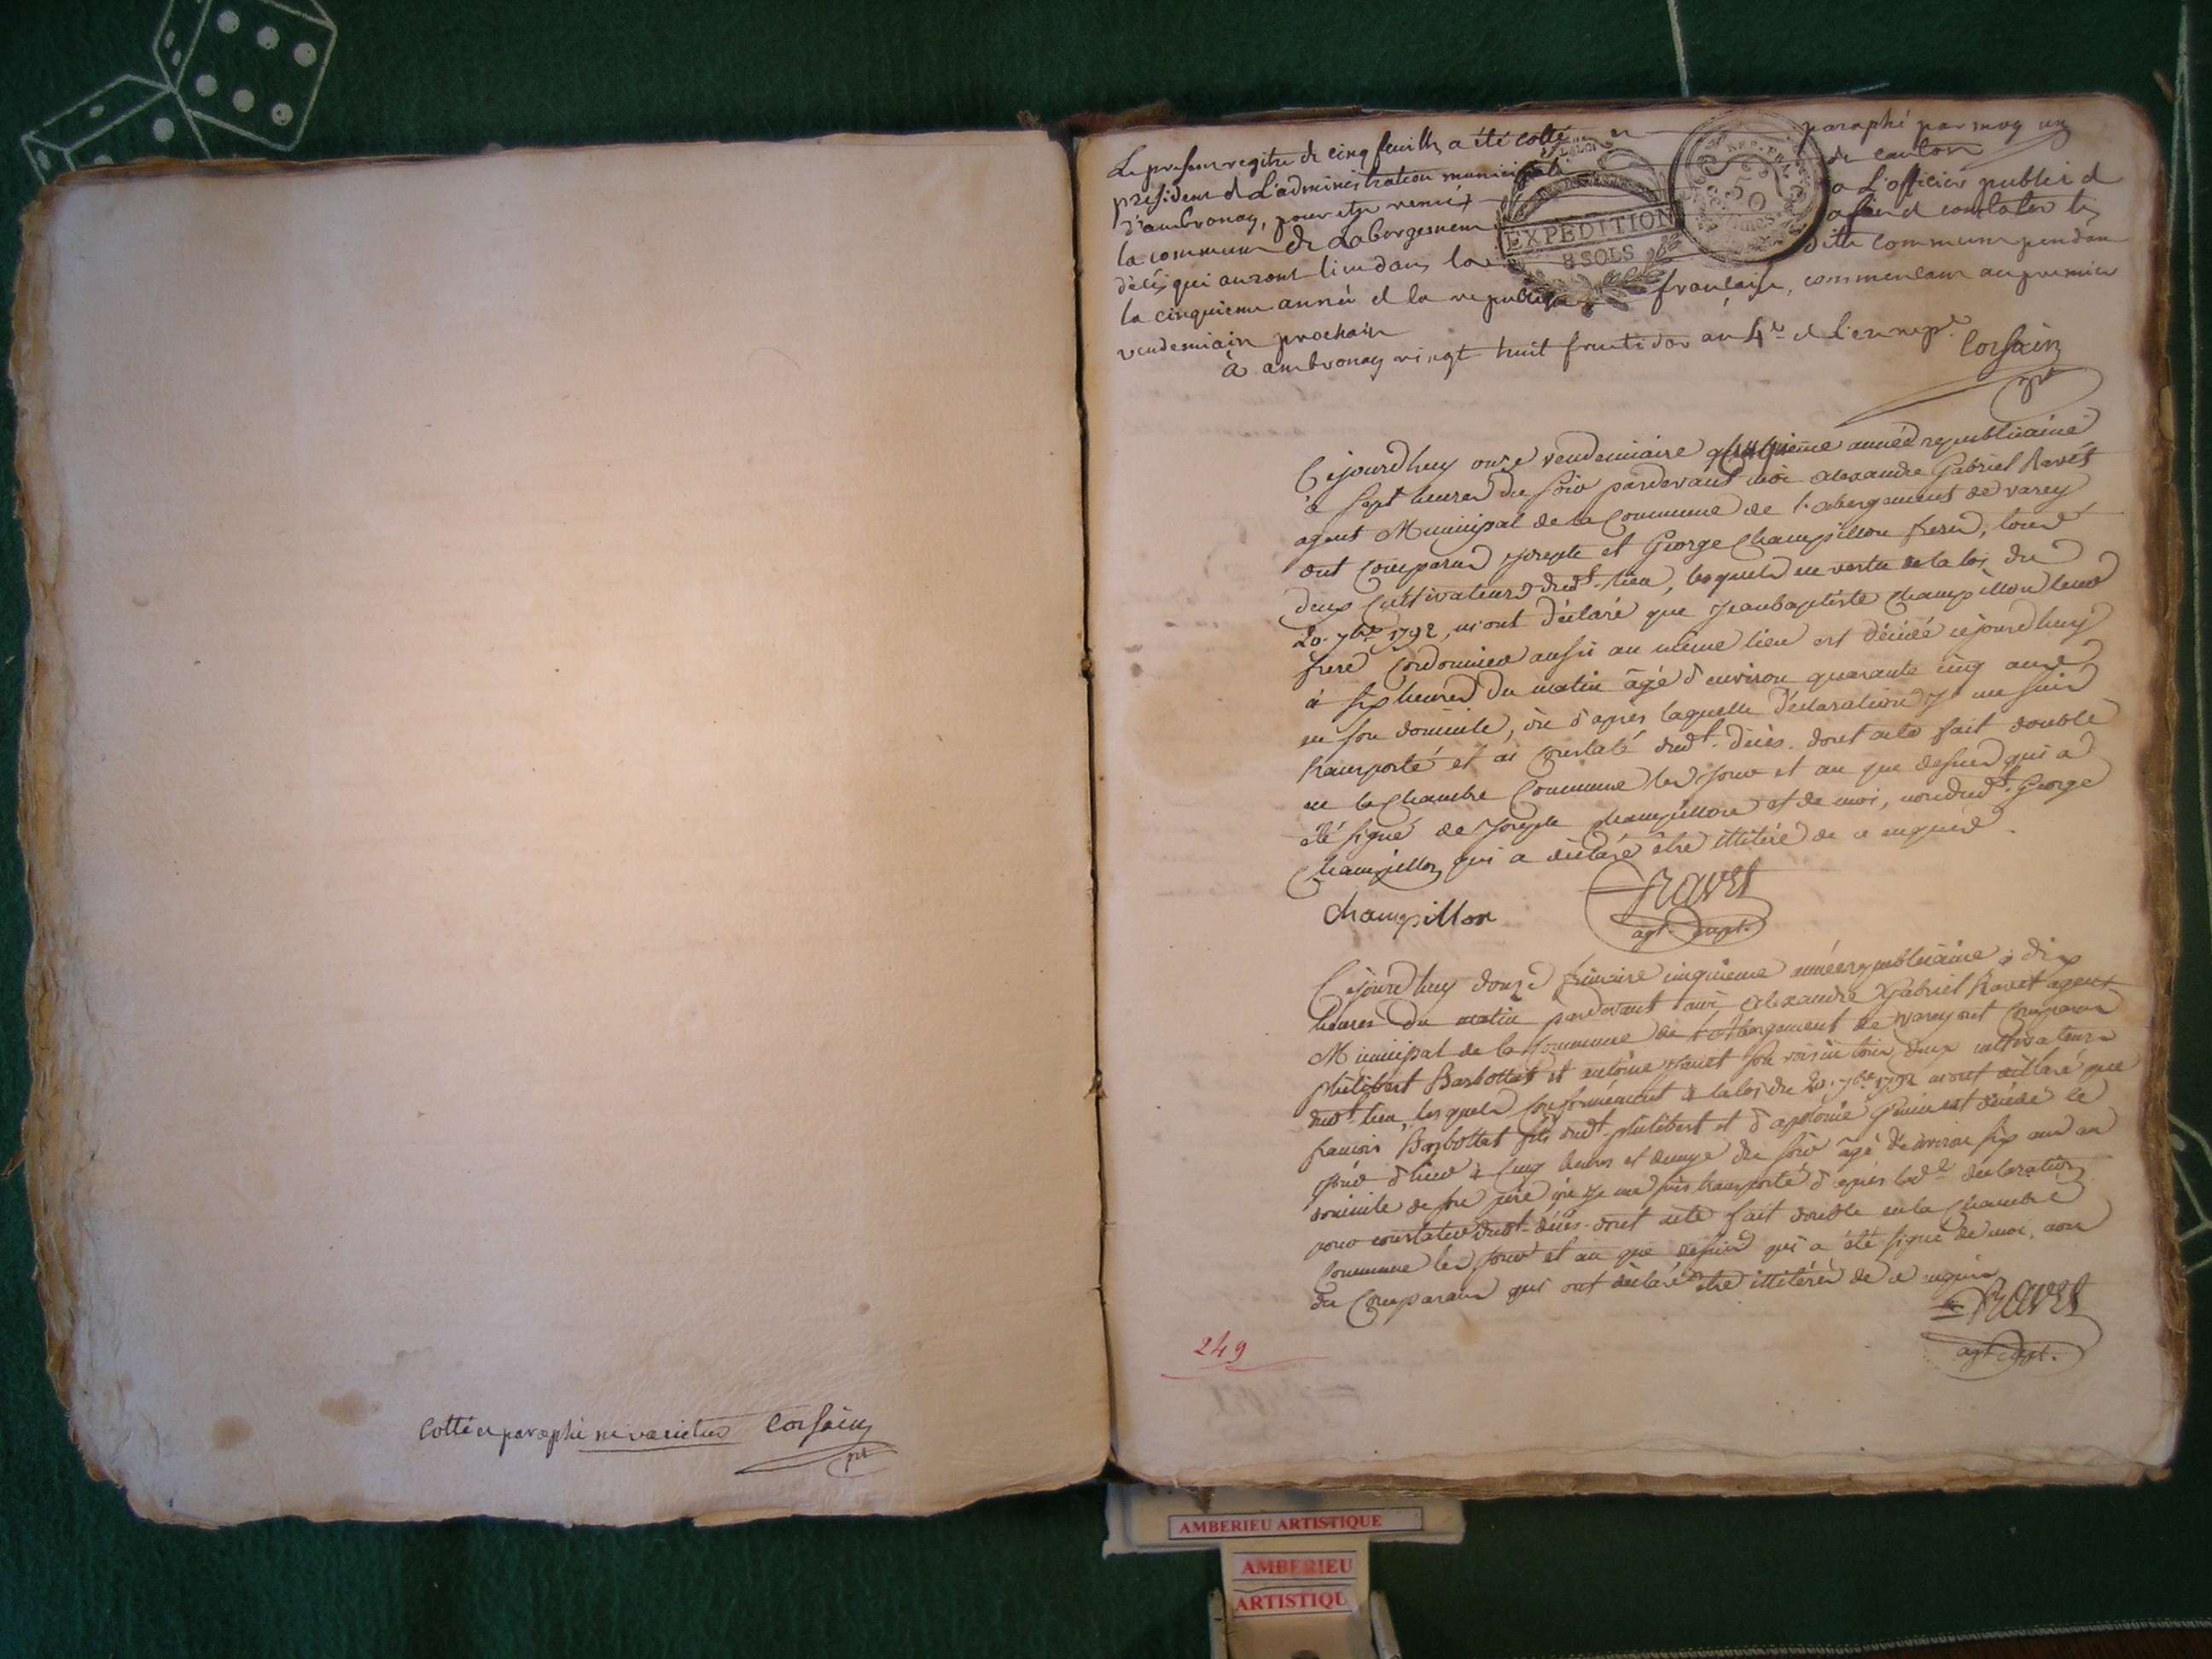 Cotté et paraphé ne varietur Corsain
pt
Le present registre de cinq feuillets a été cotté et paraphé par moy
president de L'administration municipale du canton
d'ambronay, pour etre remis a L'officier public de
la commune de Labergement afin de constater les
décés qui auront lieu dans la dite commune pendant
la cinquieme année de la republique française, commencant au premier
vendemiaire prochain
à ambronay vingt huit fructidor an 4e de l'ere repe.
Corsain
pt
LA LOI
EXPÉDITION
8 SOLS
REP. FRA.
50
Cejourd'huy onze vendemiaire cinquieme année republicaine
à sept heures du soir pardevant moi alexandre Gabriel Ravet
agent Municipal de la Commune de l'abergement de varey
ont comparu joseph et George Champillon freres, tous
deux Cultivateurs dudt. lieu, lesquels en vertu de la loi du
20. 7bre 1792, m'ont déclaré que jean baptiste Champillon leur
frere Cordonnier aussi au même lieu est décédé cejourd'huy
à six heures du matin âgé d'environ quarante cinq ans
en son domicile, où d'apres laquelle déclaration je me suis
transporté et ai constaté dudt. décès. dont acte fait double
en la Chambre Commune les jour et an que dessus qui a
été signé de joseph champillon et de moi, non dudt. George
Champillon qui a déclaré être illitéré de ce enquis.
champillon Ravet
agt. mpt.
Cejourd'huy douze frimaire cinquieme année republicaine à dix
heures du matin pardevant moi Alexandre Gabriel Ravet agent
Municipal de la Commune de l'Abergement de varey ont comparu
philibert Barbottat et antoine jouet son voisin tous deux cultivateurs
dudt. lieu, lesquels conformément à la loi du 20. 7bre 1792 m'ont déclaré que
francois Barbottat fils dudt. philibert et d'aplonie Genin est décédé le
jour d'hier à cinq heures et demye du soir âgé d'environ six ans au
domicile de son pere, où je me suis transporté d'après lade. declaration
pour constater dudt. décès. dont acte fait double en la Chambre
Commune les jour et an que dessus qui a été signé de moi, non
des Comparans qui ont déclaré être illitérés de ce enquis
Ravet
agt. mpt.
249
AMBERIEU ARTISTIQUE
AMBERIEU
ARTISTIQU